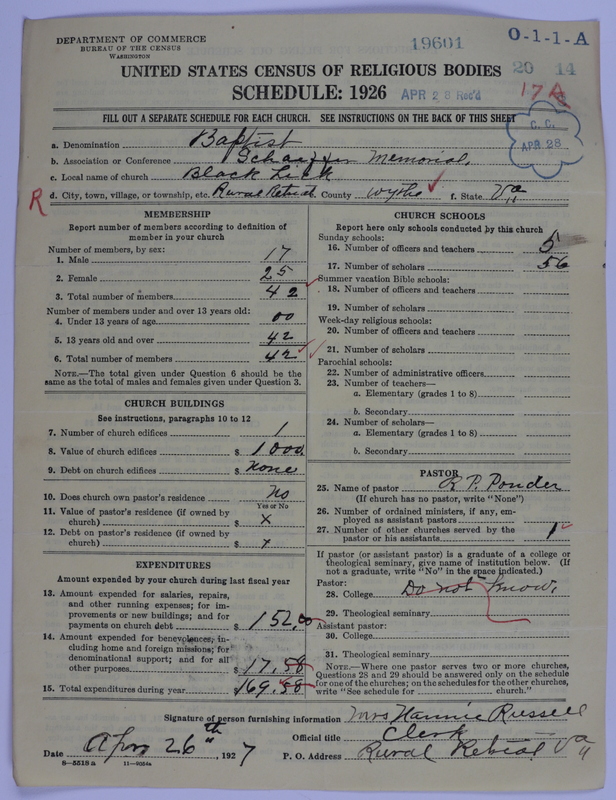 DEPARTMENT OF COMMERCE
BUREAU OF THE CENSUS
WASHINGTON
19601
O-1-1-A
20 14
17A
UNITED STATES CENSUS OF RELIGIOUS BODIES
SCHEDULE: 1926
APR 28 Rec'd
FILL OUT A SEPARATE SCHEDULE FOR EACH CHURCH. SEE INSTRUCTIONS ON THE BACK OF THIS SHEET
C. C.
APR 28
a. Denomination Baptist
b. Association or Conference Memorial
c. Local name of church Black Lick
R
d. City, town, village, or township, etc. Rural Retreat e. County Wythe f. State Va
MEMBERSHIP
Report number of members according to definition of
member in your church
Number of members, by sex:
1. Male 17
2. Female 25
3. Total number of members 42
Number of members under and over 13 years old:
4. Under 13 years of age 00
5. 13 years old and over 42
6. Total number of members 42
NOTE.—The total given under Question 6 should be the
same as the total of males and females given under Question 3.
CHURCH BUILDINGS
See instructions, paragraphs 10 to 12
7. Number of church edifices 1
8. Value of church edifices $ 1000
9. Debt on church edifices $ none
10. Does church own pastor's residence No
Yes or No
11. Value of pastor's residence (if owned by
church) $ x
12. Debt on pastor's residence (if owned by
church) $ x
EXPENDITURES
Amount expended by your church during last fiscal year
13. Amount expended for salaries, repairs,
and other running expenses; for im-
provements or new buildings; and for
payments on church debt $ 152.00
14. Amount expended for benevolences, in-
cluding home and foreign missions; for
denominational support; and for all
other purposes $ 17.58
15. Total expenditures during year $ 169.58
CHURCH SCHOOLS
Report here only schools conducted by this church
Sunday schools:
16. Number of officers and teachers 5
17. Number of scholars 56
Summer vacation Bible schools:
18. Number of officers and teachers
19. Number of scholars
Week-day religious schools:
20. Number of officers and teachers
21. Number of scholars
Parochial schools:
22. Number of administrative officers
23. Number of teachers—
a. Elementary (grades 1 to 8)
b. Secondary
24. Number of scholars—
a. Elementary (grades 1 to 8)
b. Secondary
PASTOR
25. Name of pastor R P. Ponder
(If church has no pastor, write "None")
26. Number of ordained ministers, if any, em-
ployed as assistant pastors
27. Number of other churches served by the
pastor or his assistants 1
If pastor (or assistant pastor) is a graduate of a college or
theological seminary, give name of institution below. (If
not a graduate, write "No" in the space indicated.)
Pastor:
28. College Do not know.
29. Theological seminary
Assistant pastor:
30. College
31. Theological seminary
NOTE.—Where one pastor serves two or more churches,
Questions 28 and 29 should be answered only on the schedule
for one of the churches; on the schedules for the other churches,
write "See schedule for church."
Signature of person furnishing information Mrs Hannie Russell
Official title Clerk
Date Apr 26th, 1927 P. O. Address Rural Retreat Va
8—5518a 11—9054a